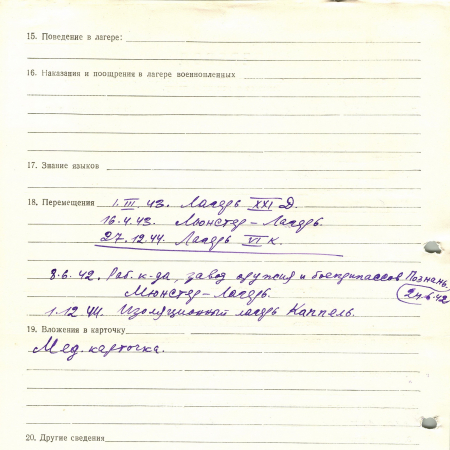 15. Поведение в лагере:
16. Наказания и поощрения в лагере военнопленных
17. Знание языков
18. Перемещения 1.III.43. Лагерь XXI Д.
16.4.43. Мюнстер-Лагерь.
27.12.44. Лагерь VI К.
8.6.42. Раб. к-да, завод оружия и боеприпассов Познань,
Мюнстер-Лагерь. 24.6.42
1.12.44. Изоляционный лагерь Каппель.
19. Вложения в карточку
Мед. карточка.
20. Другие сведения